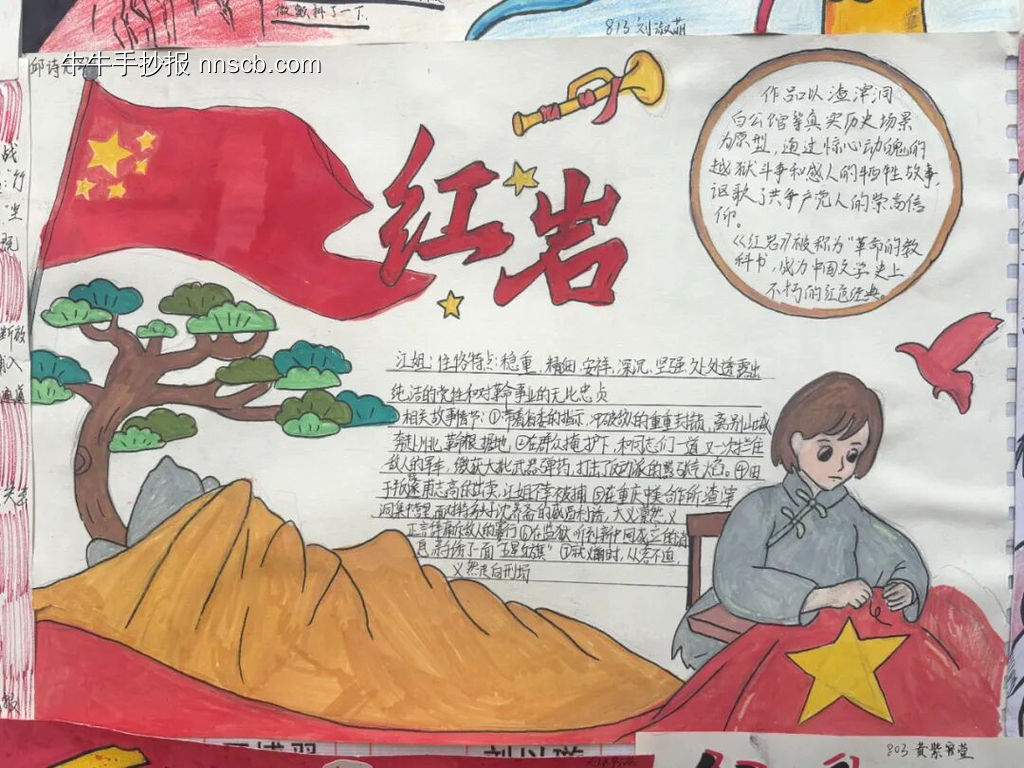 做颤抖了一下.
813 刘淑萌
牛牛手抄报 nnscb.com
邱诗
红岩
作品以渣滓洞
白公馆等真实历史场景
为原型，通过惊心动魄的
越狱斗争和感人的牺牲故事，
讴歌了共产党人的崇高信
仰。
《红岩》被称为“革命的教
科书，成为中国文学史上
不朽的红色经典。
江姐：性格特点：稳重，精细，安祥，深沉，坚强处处透露出
纯洁的党性和对革命事业的无比忠贞
相关故事情节：①带着省委的指示，冲破敌的重重封锁，离别山城
奔赴华北革命根据地 ②在群众掩护下，和同志们一道又一次拦住
敌人的军车，缴获大批武器弹药，打击了反动派的嚣张气焰。④由
于叛徒甫志高的出卖，江姐不幸被捕 ⑤在重庆中美合作所渣滓
洞集中营里，面对特务头沈养斋的威逼利诱，大义凛然，义
正言辞面斥敌人的暴行 ⑥在监狱听到新中国成立的消
息 亲绣了一面“五星红旗” ⑦就义时，从容不迫，
义然走向刑场
803 黄紫